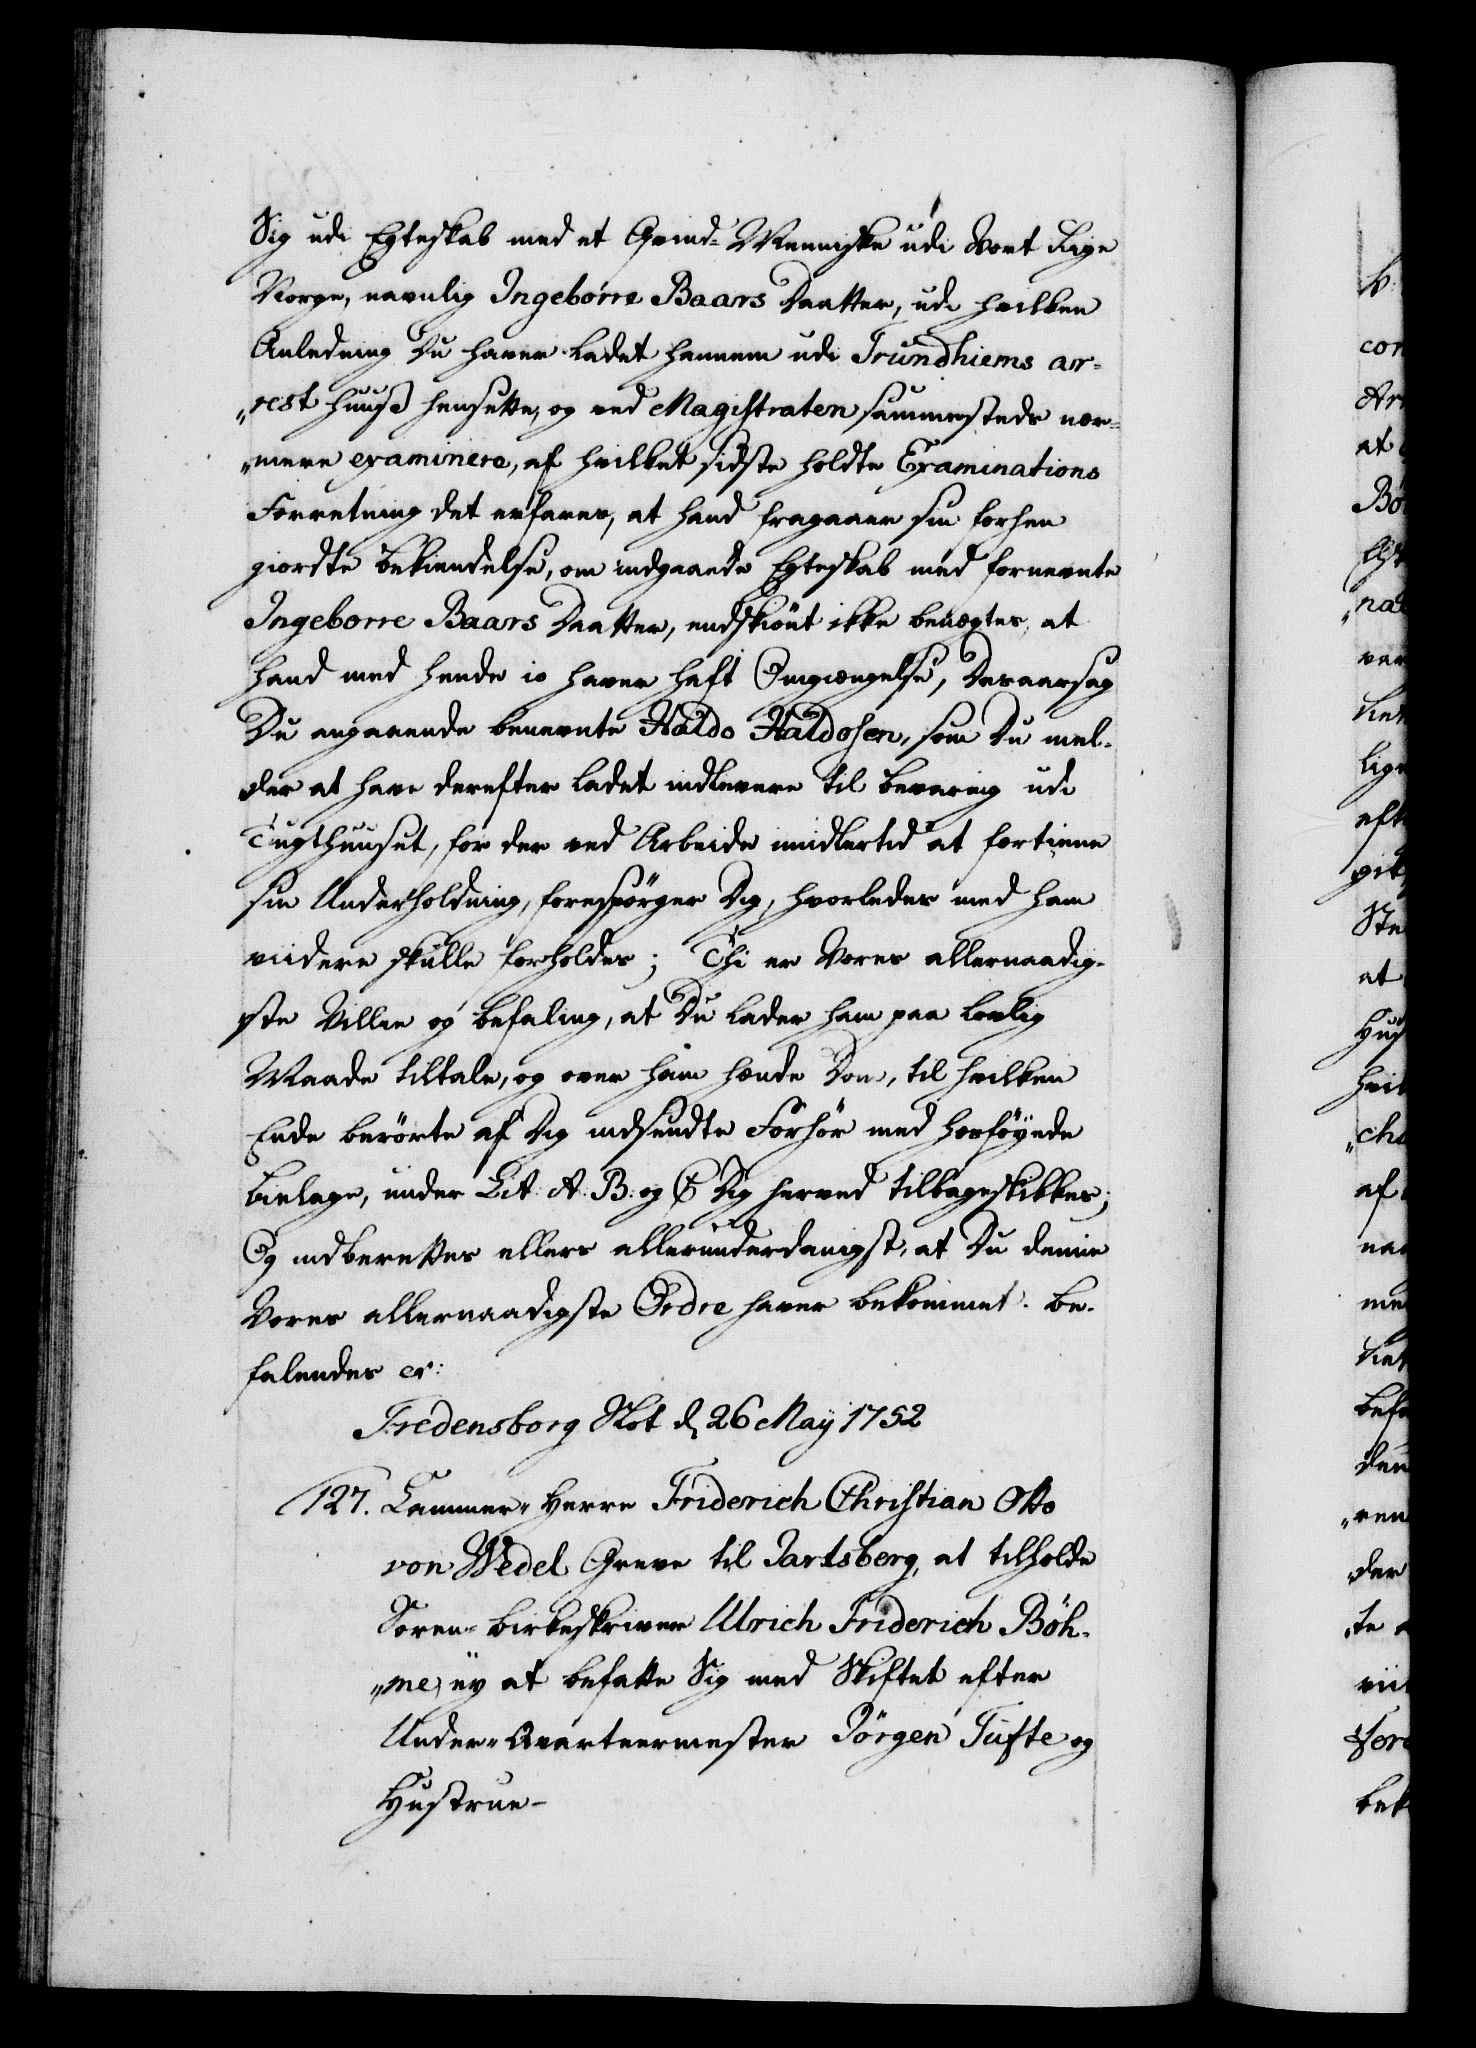 Sig udi Egteskab med et Qvind-Menniske udi Vort Rige
Norge, navnlig Ingebórre Baars Daatter, udi hvilken
Anledning Du haver ladet hannem udi Trundhiems ar-
„rest Huuß hensette, og ved Magistraten sammesteds nær-
„mere examinere, af hvilket sidste holdte Examinations
Forretning det erfares, at hand fragaaer sin forhen
giordte Bekiendelse, om indgaaede Egteskab med fornevnte
Ingeborre Baars Daatter, endskiönt ikke benægtes, at
hand med hende jo haver haft Omgiengelse, Desaarsag
Du angaaende benevnte Haldo Haldosen, som Du mel-
der at have derefter ladet indlevere til bevaring udi
Tugthuuset, for der ved Arbeide imidlertid at fortiene
sin Underholdning, forespörger Dig, hvorledes med ham
viidere skulle forholdes; Thi er Vores allernaadig-
ste Villie og befaling, at Du lader ham paa lovlig
Maade tiltale, og over ham hænde Dom, til hvilken
Ende berörte af Dig indsendte Forhör med hosföyede
bielage, under Lit: A: B: og C Dig herved tilbageskikkes;
Og indberettes ellers allerunderdanigst, at Du denne
Vores allernaadigste Ordre haver bekommet. Be-
falendes er:
Fredensborg Slot d. 26 Maÿ 1752
127. Cammer-Herre Friderich Christian Otto
von Wedel Greve til Jarlsberg, at tilholde
Soren-birkeskriver Ulrich Friderich Böh-
„me, ey at befatte Sig med Skiftet efter
Under-Qvarteermester Jörgen Tufte og
Hustrue-
b.
con
Arr
at
Bö
Est
„na
ver
lige
efte
git
Ste
at
Hus
hvil
„cha
af
naa
me
befa
den
„ven
der
te
vii
Fore
bek